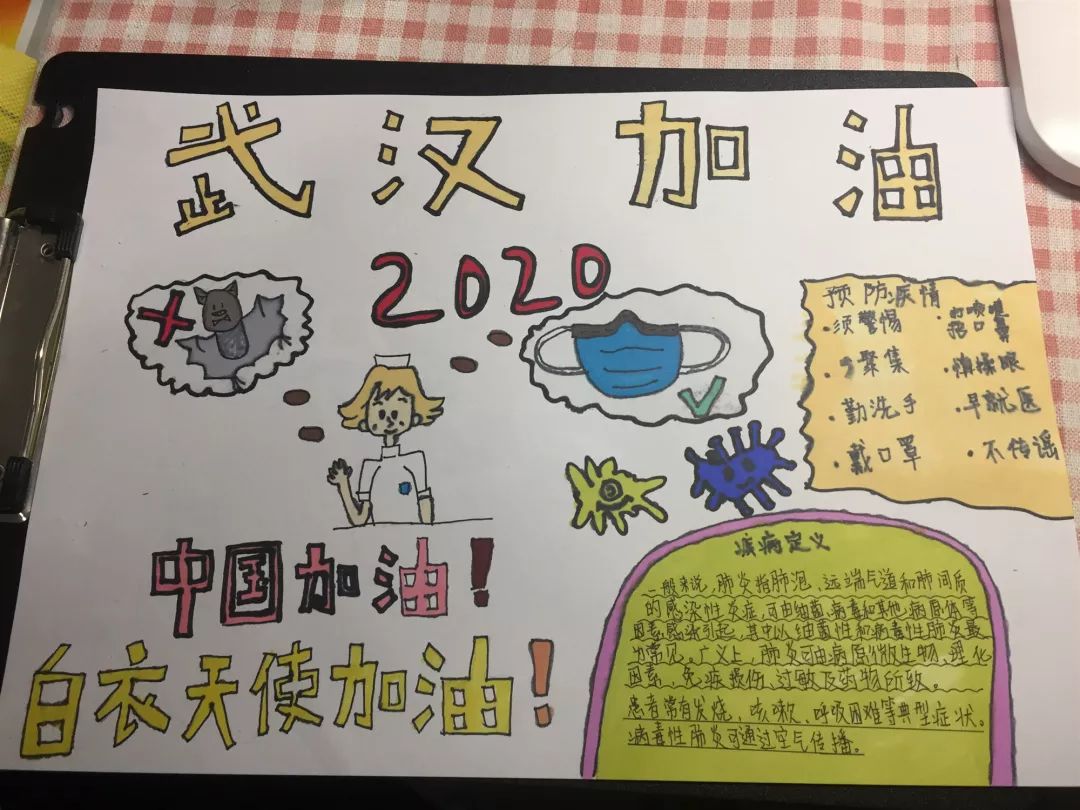 武汉加油
2020
预防疫情
·须警惕
·打喷嚏
捂口鼻
·少聚集
·慎揉眼
·勤洗手
·早就医
·戴口罩
·不传谣
中国加油!
白衣天使加油!
疾病定义
一般来说,肺炎指肺泡、远端气道和肺间质
的感染性炎症,可由细菌、病毒和其他病原体等
因素感染引起,其中以细菌性和病毒性肺炎最
为常见。广义上,肺炎可由病原微生物、理化
因素、免疫损伤、过敏及药物所致。
患者常有发烧、咳嗽、呼吸困难等典型症状。
病毒性肺炎可通过空气传播。